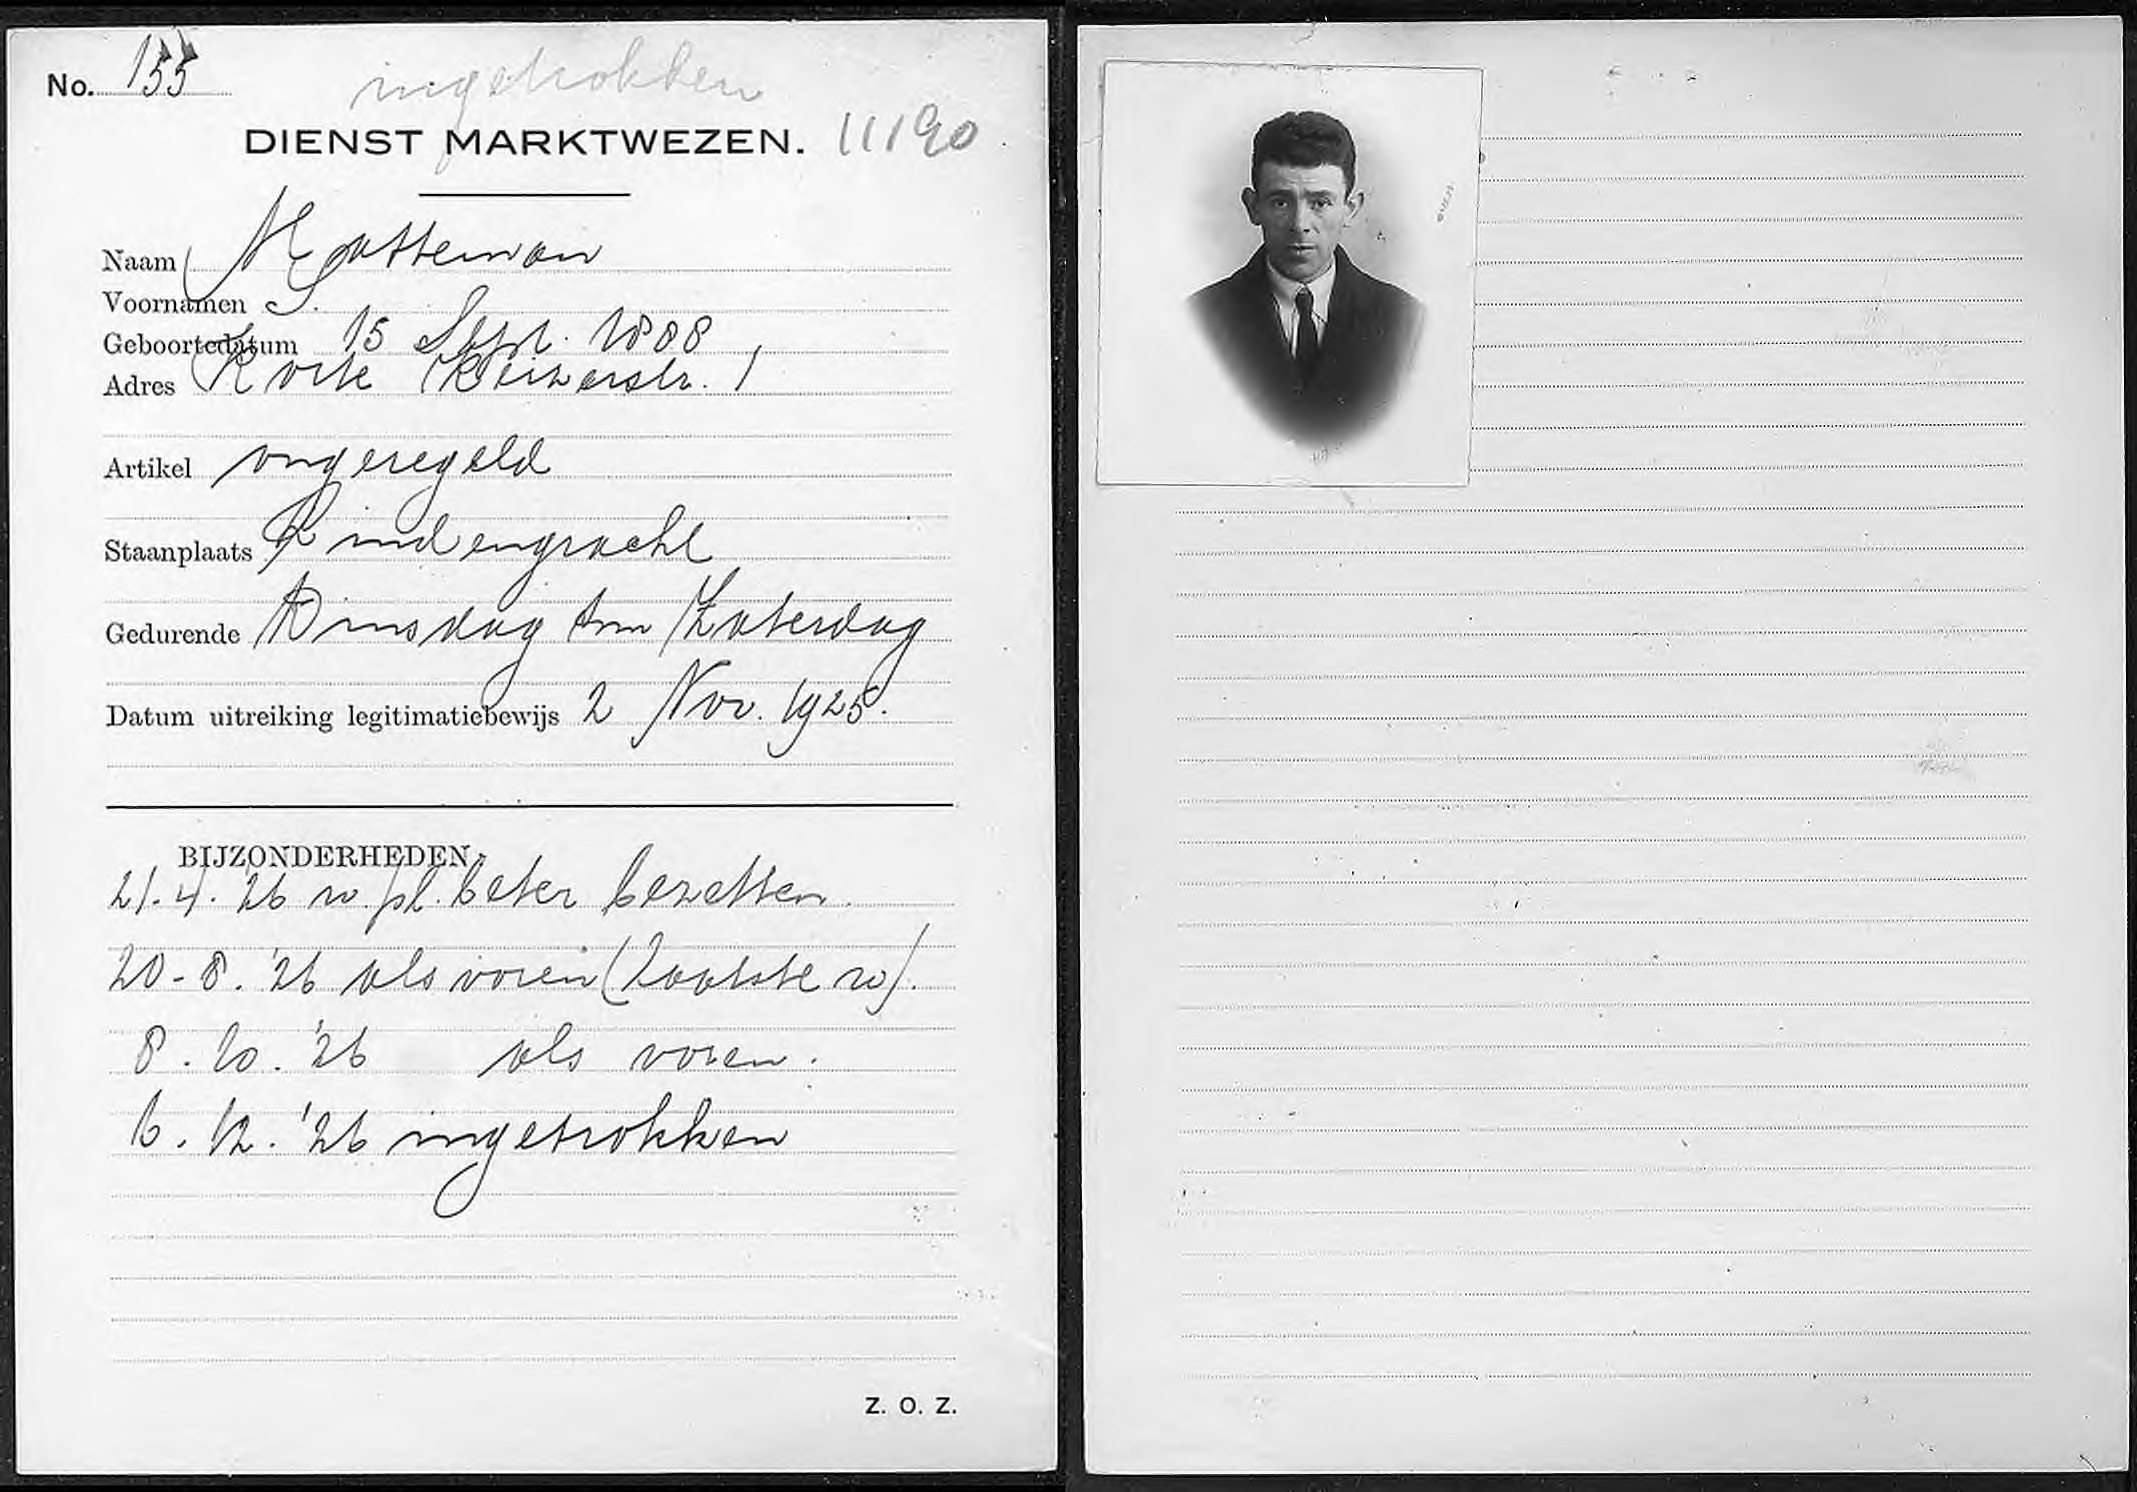 No. 155
ingetrokken
DIENST MARKTWEZEN. 11190
Naam Matteman
Voornamen S.
Geboortedatum 15 Sept. 1888
Adres Korte Keizerstr. 1
Artikel ongeregeld
Staanplaats Lindengracht
Gedurende Dinsdag tm Zaterdag
Datum uitreiking legitimatiebewijs 2 Nov. 1925.
BIJZONDERHEDEN.
21.4.'26 w. pl. beter bezetten.
20-8.'26 als voren (laatste w).
8.10.'26 als voren.
6.12.'26 ingetrokken
Z. O. Z.